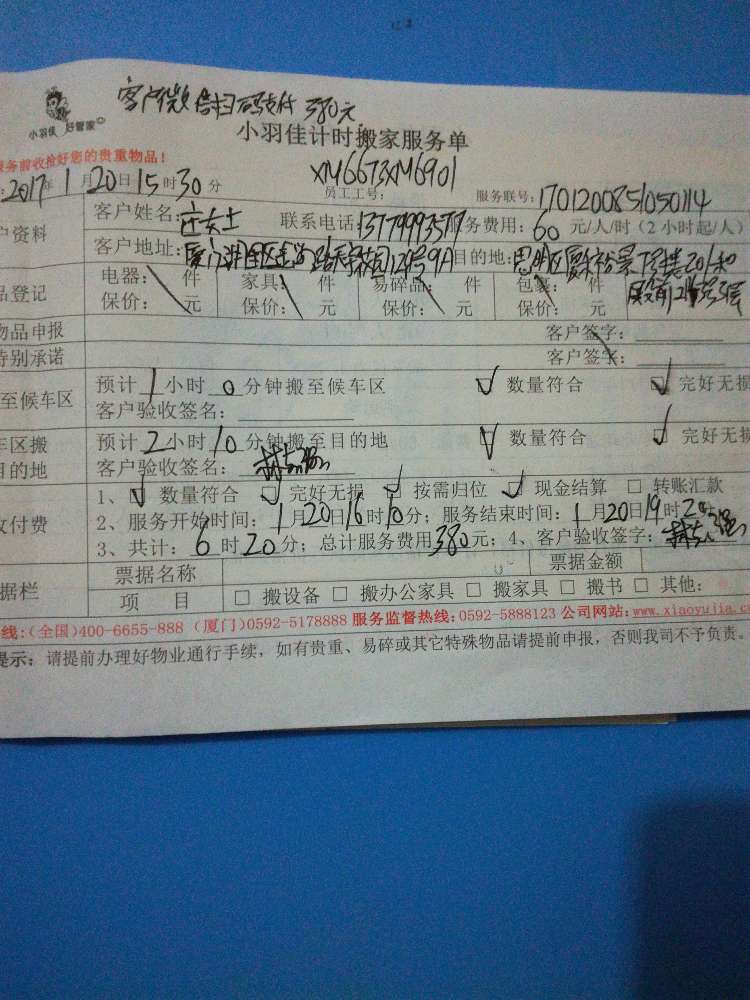 客户微信扫码支付 380元
小羽佳 好管家
小羽佳计时搬家服务单
务前收拾好您的贵重物品！
XM6673XM6901
2017年1月20日15时30分 员工工号： 服务联号：1701200851050114
户资料 客户姓名：庄女士 联系电话 服务费用：60元/人/时（2小时起/人）
客户地址： 目的地：
品登记 电器： 件 家具： 件 易碎品： 件 包装： 件
保价： 元 保价： 元 保价： 元 保价： 元
物品申报 客户签字：
特别承诺 客户签字：
至候车区 预计1小时0分钟搬至候车区 数量符合 完好无损
客户验收签名：
车区搬 预计2小时10分钟搬至目的地 数量符合 完好无损
目的地 客户验收签名：
1、 数量符合 完好无损 按需归位 现金结算 转账汇款
收付费 2、服务开始时间：1月20日16时10分；服务结束时间：1月20日19时
3、共计：6时20分；总计服务费用380元；4、客户验收签字：
据栏 票据名称 票据金额
项 目 搬设备 搬办公家具 搬家具 搬书 其他：
线：(全国)400-6655-888 (厦门)0592-5178888 服务监督热线：0592-5888123 公司网站：www.xiaoyujia.co
提示：请提前办理好物业通行手续，如有贵重、易碎或其它特殊物品请提前申报，否则我司不予负责。